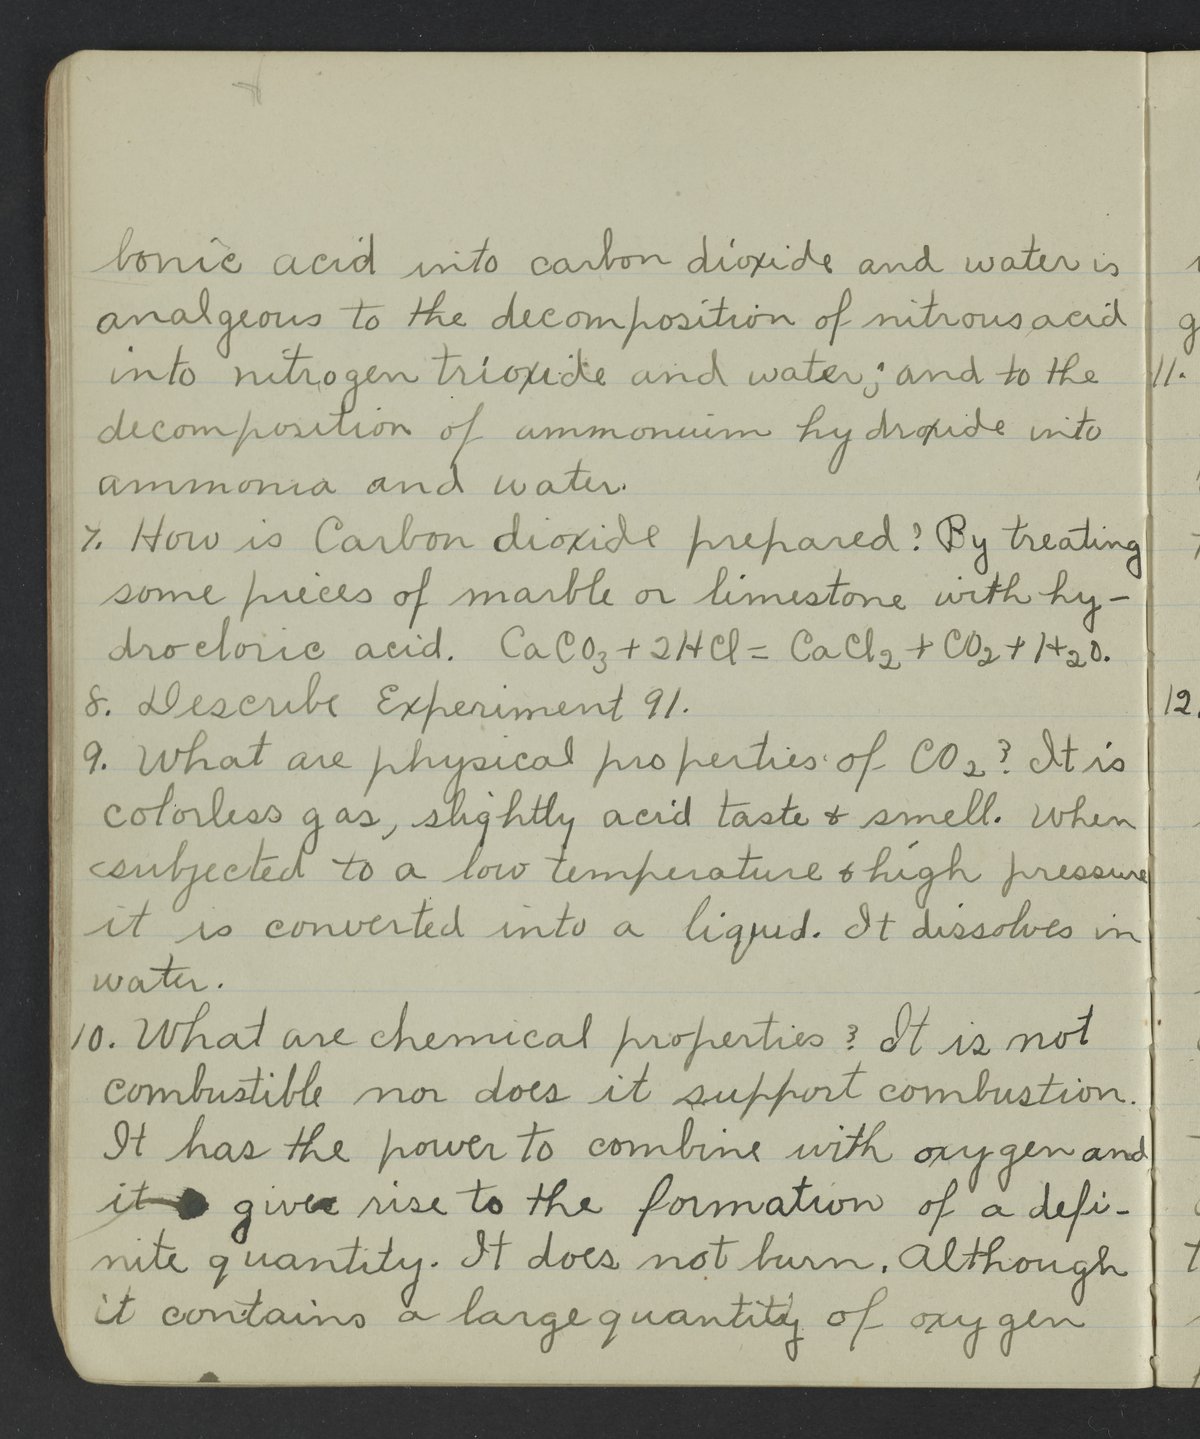 bonic acid into carbon dioxide and water is
analgeous to the decomposition of nitrous acid
into nitrogen trioxide and water; and to the
decomposition of ammonium hydroxide into
ammonia and water.
7. How is Carbon dioxide prepared? By treating
some pieces of marble or limestone with hy-
drocloric acid. CaCO3 + 2HCl = CaCl2 + CO2 + H2O.
8. Describe Experiment 91.
9. What are physical properties of CO2? It is
colorless gas, slightly acid taste & smell. When
subjected to a low temperature & high pressure
it is converted into a liquid. It dissolves in
water.
10. What are chemical properties? It is not
combustible nor does it support combustion.
It has the power to combine with oxygen and
it give rise to the formation of a defi-
nite quantity. It does not burn. Although
it contains a large quantity of oxygen
g
11.
12.